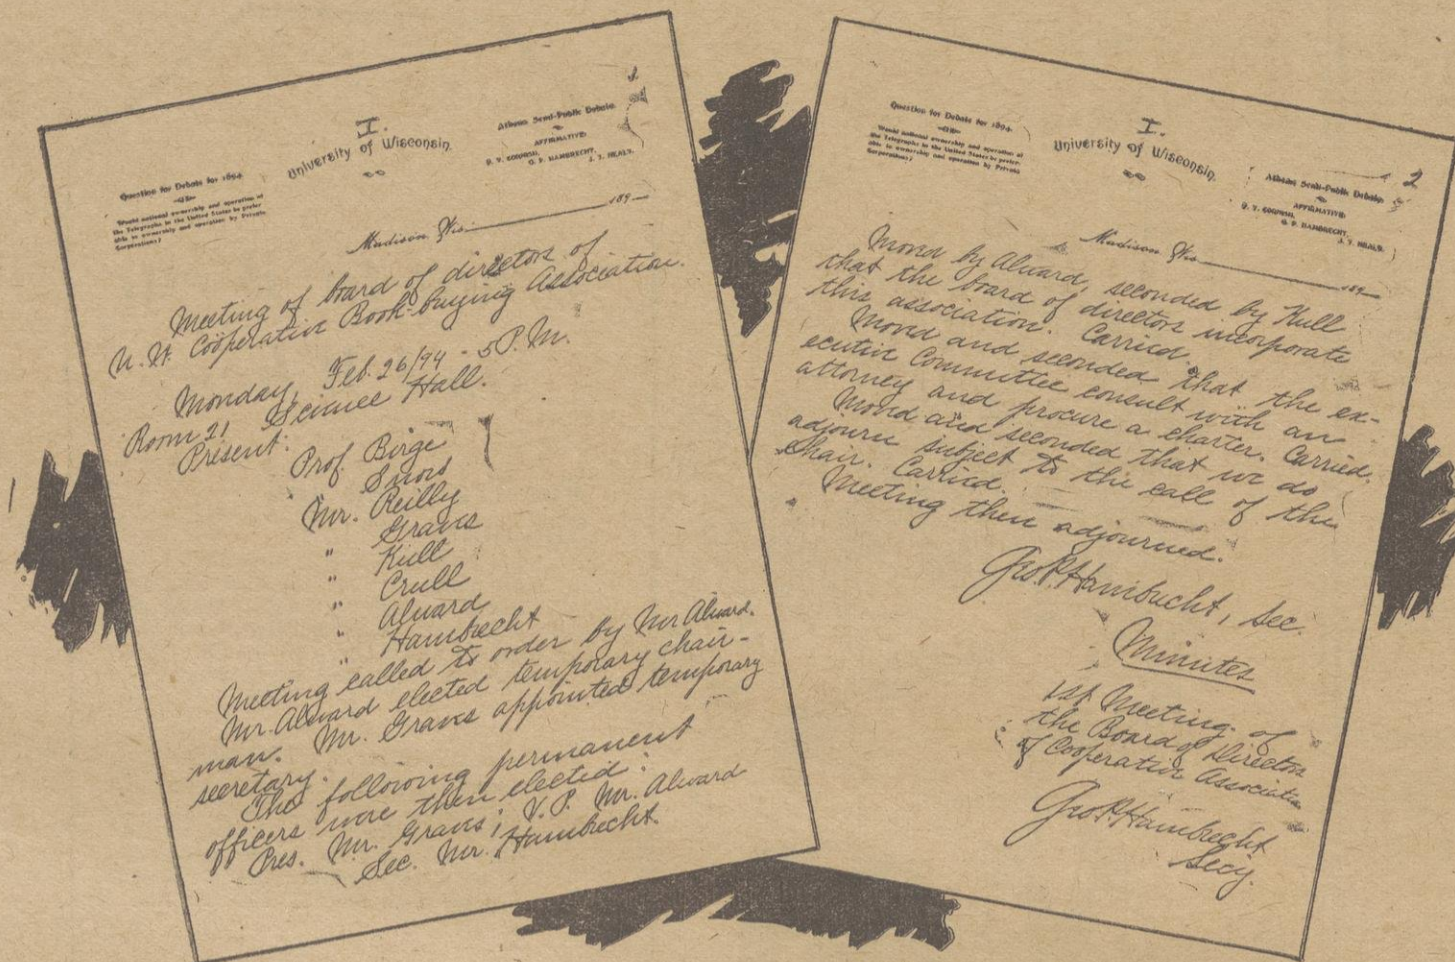 1.
I.
University of Wisconsin.
Question for Debate for 1894.
Would national ownership and operation of
the Telegraphs in the United States be prefer-
able to ownership and operation by Private
Corporations?
Athena Semi-Public Debate.
AFFIRMATIVE:
G. P. HAMBRECHT.
J. T. HEALY.
Madison Wis. 189
Meeting of board of directors of
U. W. Cooperative Book-buying Association.
Monday, Feb. 26/94 - 5 P. M.
Room 21 Science Hall.
Present:
Prof Birge
" Snow
Mr. Reilly
" Graves
" Kull
" Crull
" Alward
" Hambrecht
Meeting called to order by Mr Alward.
Mr. Alward elected temporary chair-
man. Mr. Graves appointed temporary
secretary.
The following permanent
officers were then elected:
Pres. Mr. Graves; V. P. Mr. Alward
Sec. Mr. Hambrecht.
2
I.
University of Wisconsin.
Question for Debate for 1894.
Would national ownership and operation of
the Telegraphs in the United States be prefer-
able to ownership and operation by Private
Corporations?
Athena Semi-Public Debate.
AFFIRMATIVE:
G. P. HAMBRECHT.
J. T. HEALY.
Madison Wis. 189
Moved by Alward, seconded by Kull
that the board of directors incorporate
this association. Carried.
Moved and seconded that the ex-
ecutive Committee consult with an
attorney and procure a charter. Carried.
Moved and seconded that we do
adjourn subject to the call of the
Chair. Carried.
Meeting then adjourned.
Geo. P. Hambrecht, Sec.
Minutes
1st Meeting of
the Board of Directors
of Cooperative Association
Geo P. Hambrecht
Secy.